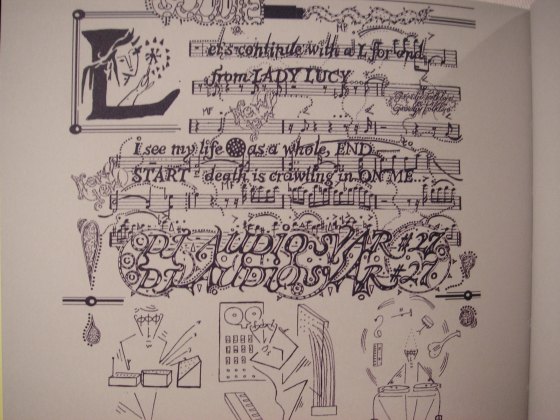 Let's continue with a L for and
from LADY LUCY
I see my life as a whole, END
START - death is crawling in ON ME.
DJ AUDIOSVAR #27
DJ AUDIOSVAR #27